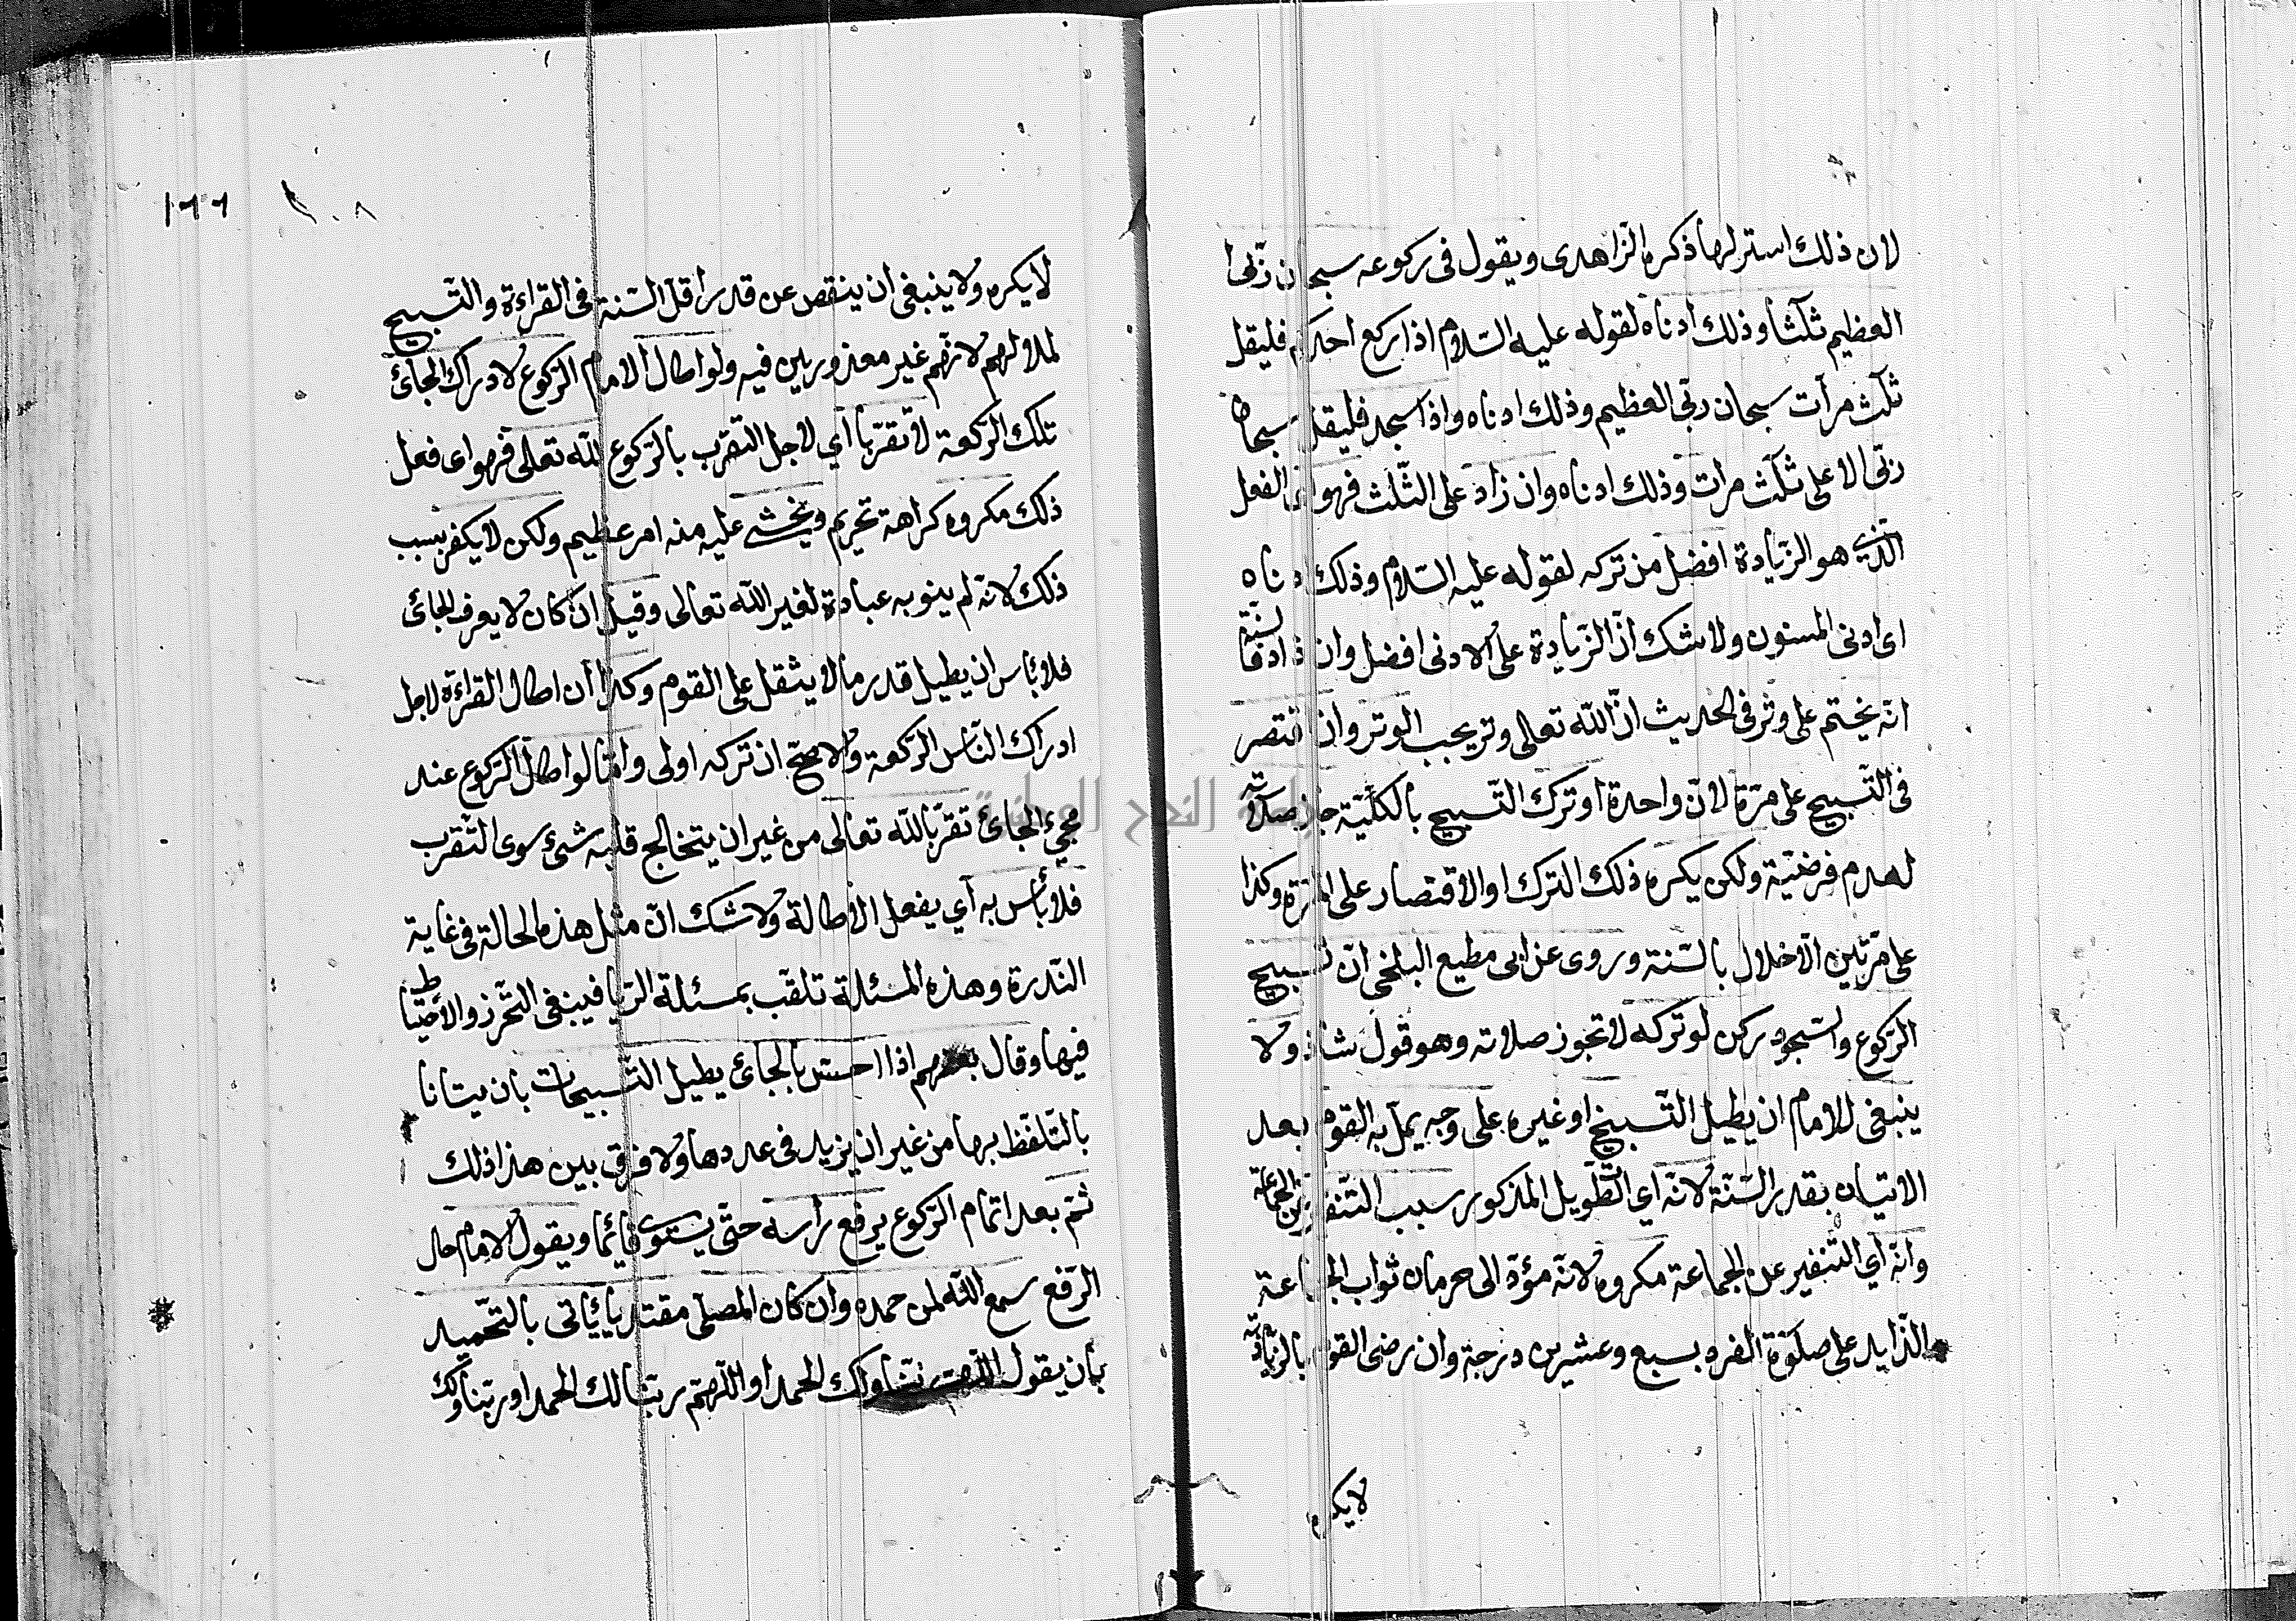 لان ذلك استر لها ذكره الزاهدى ويقول فى ركوعه سبحان ربى
العظيم ثلثا وذلك ادناه لقوله عليه السلام اذا ركع احدكم فليقل
ثلث مرات سبحان ربى العظيم وذلك ادناه واذا سجد فليقل سبحان
ربى الاعلى ثلث مرات وذلك ادناه وان زاد على الثلث فهو اى الفعل
الذى هو الزيادة افضل من تركه لقوله عليه السلام وذلك ادناه
اى ادنى المسنون ولا شك ان الزيادة على الادنى افضل وان زاد فالسنة
انه يختم على وتر فى الحديث ان الله تعالى وتر يحب الوتر وان اقتصر
فى التسبيح على مرة لان واحدة او ترك التسبيح بالكلية جاز صلاته
لعدم فرضيته ولكن يكره ذلك الترك او الاقتصار على المرة وكذا
على مرتين الاخلال بالسنة وروى عن ابى مطيع البلخى ان تسبيح
الركوع والسجود ركن لو تركه لا تجوز صلاته وهو قول شاذ ولا
ينبغى للامام ان يطيل التسبيح او غيره على وجه يمل به القوم بعد
الاتيان بقدر السنة لانه اى التطويل المذكور سبب التنفير عن الجماعة
وانه اى التنفير عن الجماعة مكروه لانه مؤد الى حرمان ثواب الجماعة
الزايد على صلوة الفرد بسبع وعشرين درجة وان رضى القوم بالزيادة
لايكره
١٦٦
١٠٨
لايكره ولا ينبغى ان ينقص عن قدر اقل السنة فى القراءة والتسبيح
لملالهم لانهم غير معذورين فيه ولو اطال الامام الركوع لادراك الجائ
تلك الركعة لا تقربا اى لاجل التقرب بالركوع لله تعالى فهو اى فعل
ذلك مكروه كراهة تحريم ويخشى عليه منه امر عظيم ولكن لا يكفر بسبب
ذلك لانه لم ينو به عبادة لغير الله تعالى وقيل ان كان لا يعرف الجائ
فلا بأس ان يطيل قدر ما لا يثقل على القوم وكذا ان اطال القراءة لاجل
ادراك الناس الركعة والاصح ان تركه اولى واما لو اطال الركوع عند
مجئ الجائ تقربا لله تعالى من غير ان يتخالج قلبه شئ سوى التقرب
فلا بأس به اى يفعل الاطالة ولا شك ان مثل هذه الحالة فى غاية
الندرة وهذه المسئلة تلقب بمسئلة الريا فينبغى التحرز والاحتياط
فيها وقال بعضهم اذا احس بالجائ يطيل التسبيحات بان يتانا
بالتلفظ بها من غير ان يزيد فى عددها ولا فرق بين هذا ذلك
ثم بعد اتمام الركوع يرفع رأسه حتى يستوى قائما ويقول الامام حال
الرفع سمع الله لمن حمده وان كان المصلى مقتديا ياتى بالتحميد
بان يقول اللهم ربنا ولك الحمد او اللهم ربنا لك الحمد او ربنا ولك
جامعة النجاح الوطنية